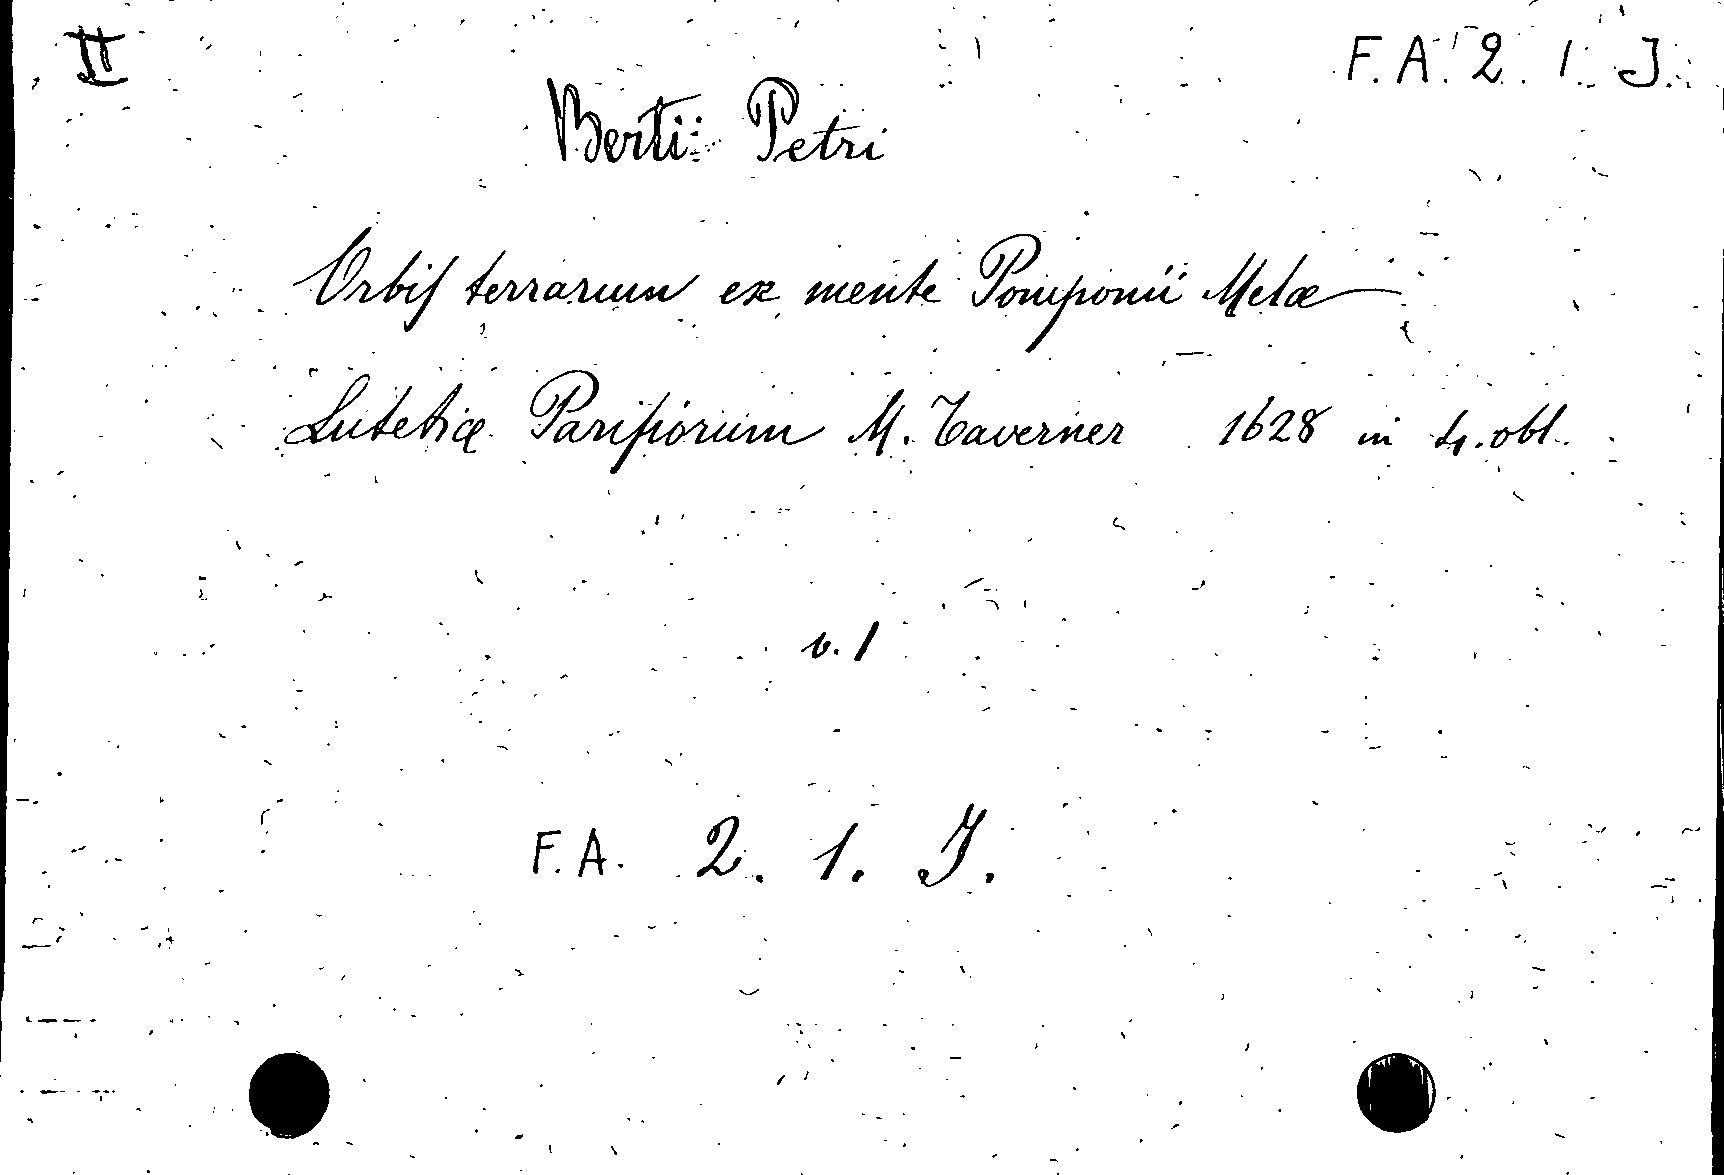 II F. A. 2. 1. J.
Bertii Petri
Orbis terrarum ex mente Pomponii Melæ
Lutetiæ Parisiorum M. Taverner 1628 in 4. obl.
v. 1
F. A. 2. 1. J.